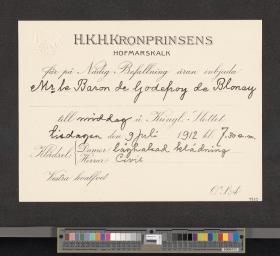 H.K.H. KRONPRINSENS
HOFMARSKALK
får på Nådig Befallning äran inbjuda
Mr le Baron de Godefroy de Blonay
till middag å Kungl. Slottet
tisdagen den 9 juli 1912 kl 7,30 e.m.
Klädsel: Damer låghalsad klädning
Herrar Civil
Västra hvalfvet
O.S.A.